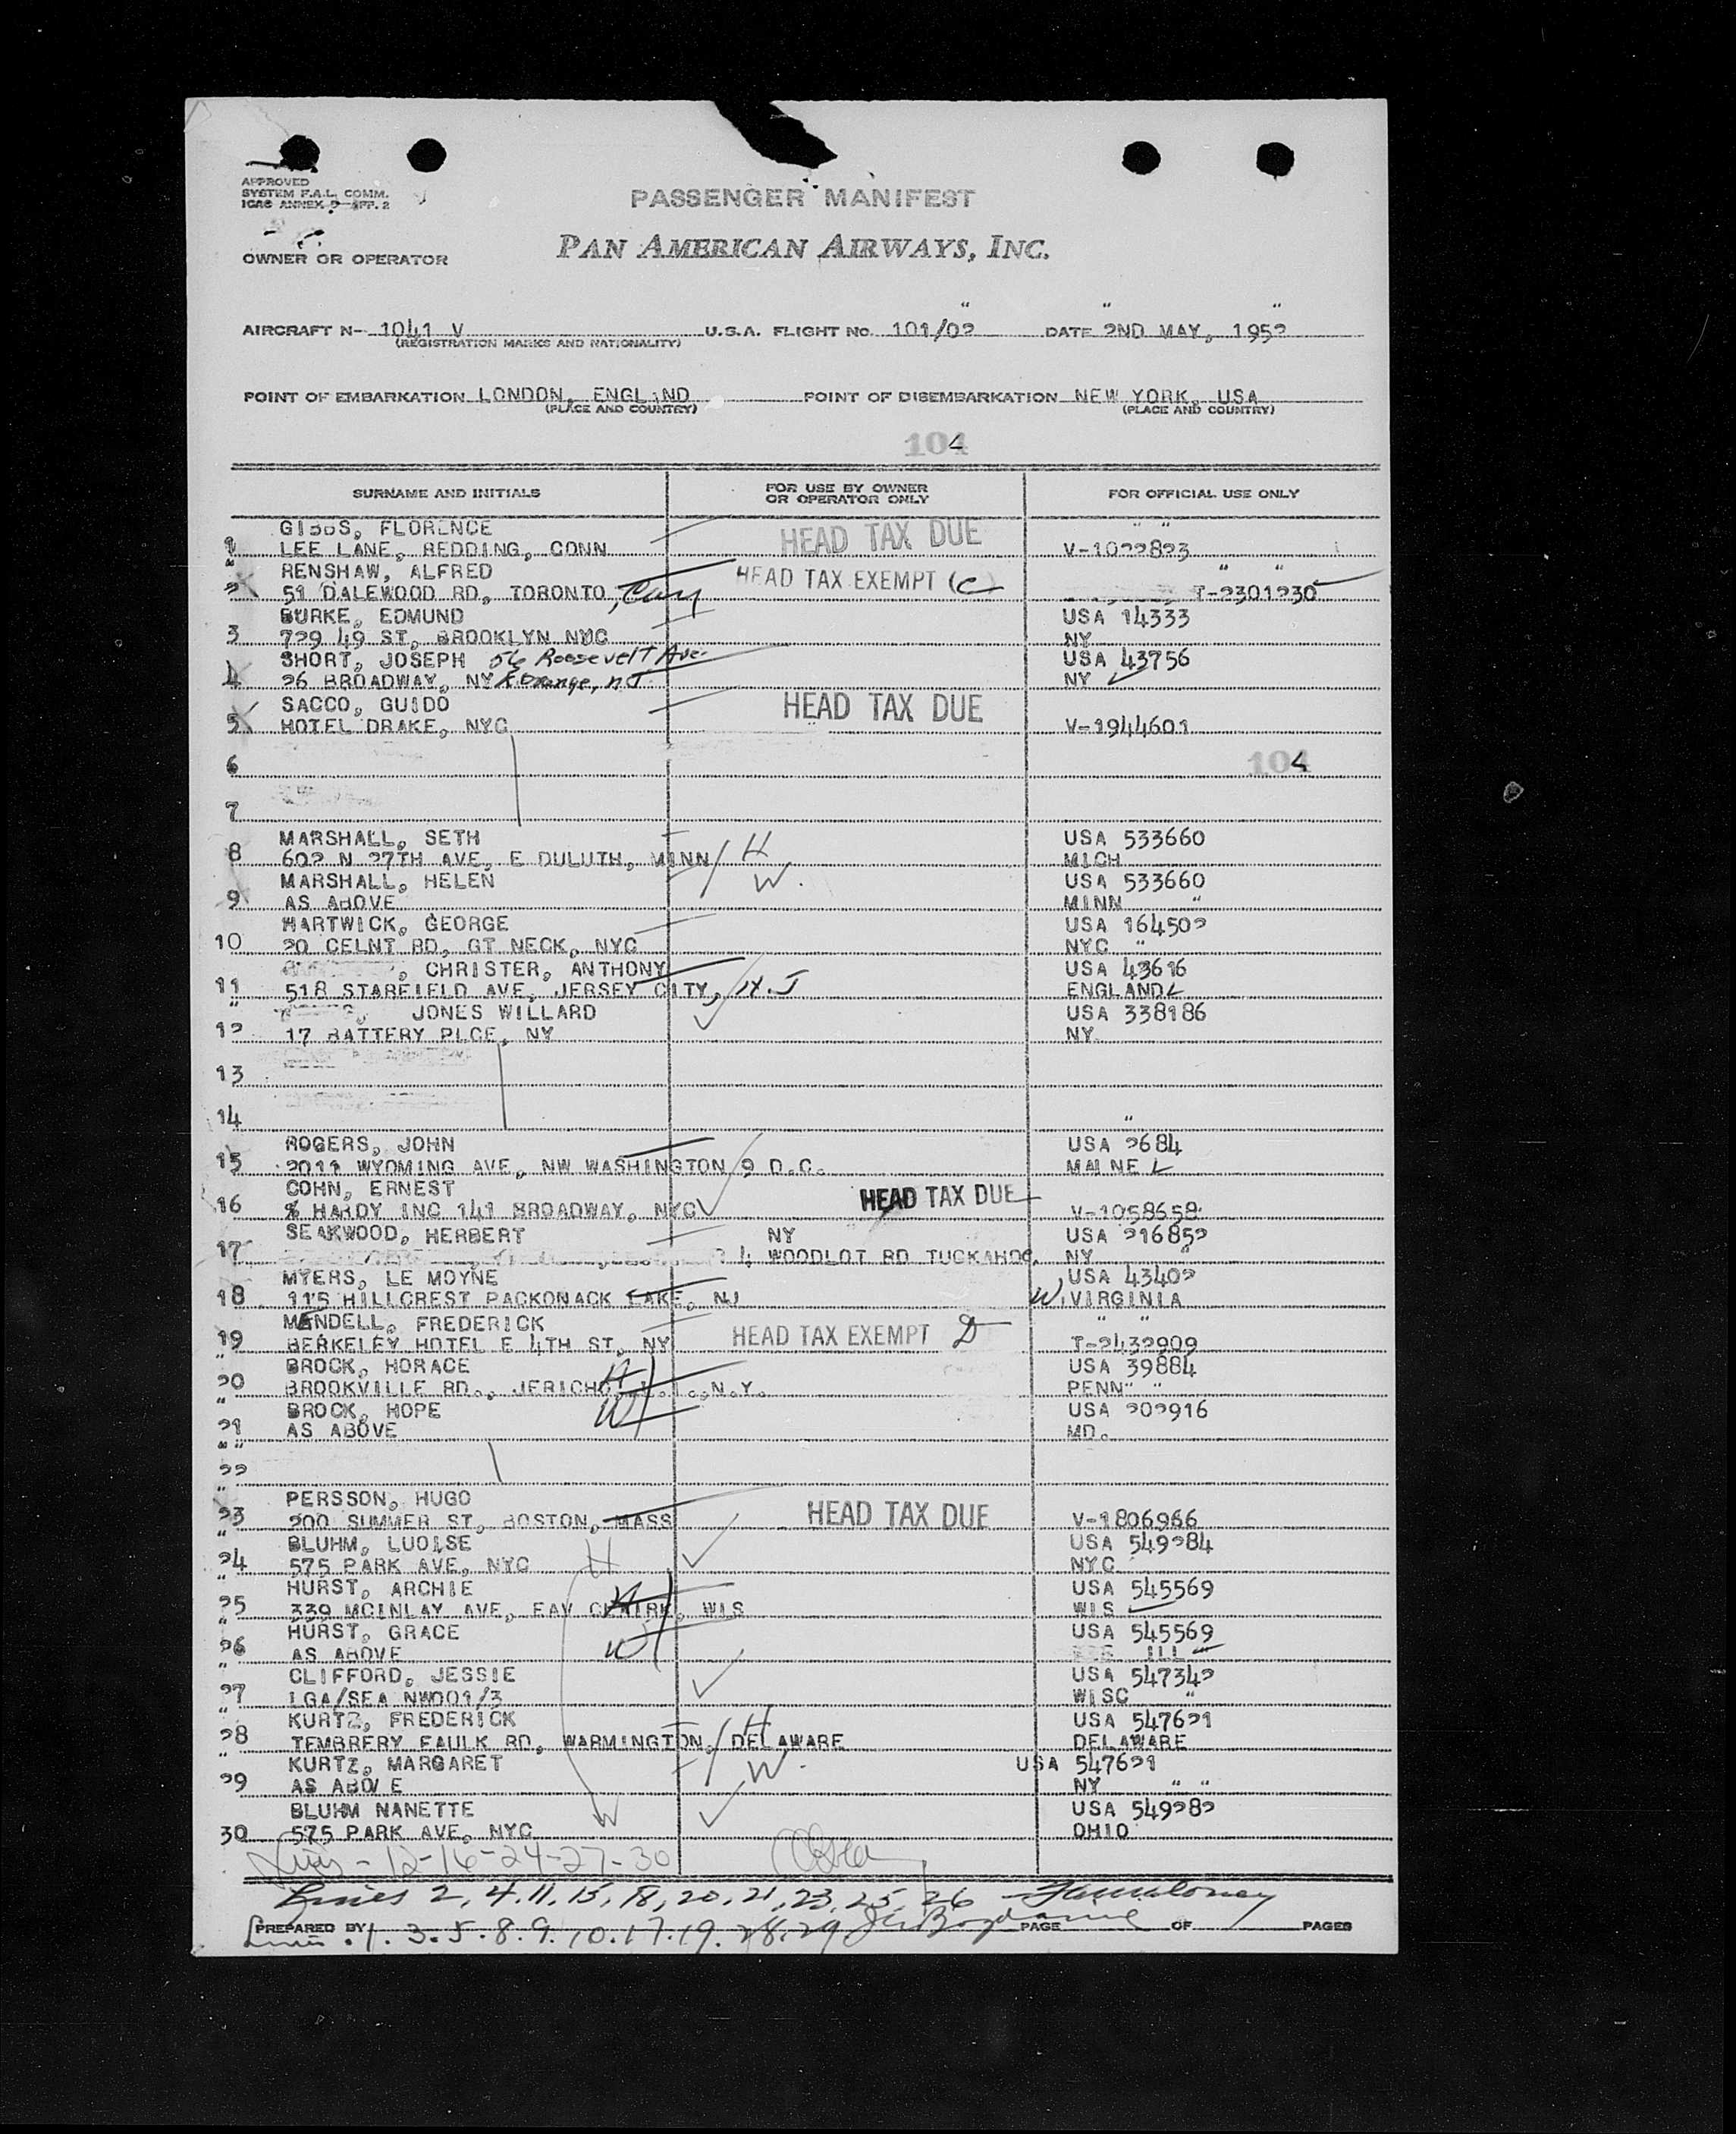 APPROVED
SYSTEM F.A.L. COMM.
ICAO ANNEX 9 APP. 2
PASSENGER MANIFEST
OWNER OR OPERATOR PAN AMERICAN AIRWAYS, INC.
AIRCRAFT N- 1041 V U.S.A. FLIGHT NO. 101/02 DATE 2ND MAY, 1952
(REGISTRATION MARKS AND NATIONALITY)
POINT OF EMBARKATION LONDON, ENGLAND POINT OF DISEMBARKATION NEW YORK, USA
(PLACE AND COUNTRY) (PLACE AND COUNTRY)
104
SURNAME AND INITIALS FOR USE BY OWNER OR OPERATOR ONLY FOR OFFICIAL USE ONLY
GIBBS, FLORENCE HEAD TAX DUE
1 LEE LANE, REDDING, CONN V-1022823
RENSHAW, ALFRED HEAD TAX EXEMPT (C)
2 51 DALEWOOD RD, TORONTO, Can T-2301230
BURKE, EDMUND USA 14333
3 729 49 ST, BROOKLYN NYC NY
SHORT, JOSEPH 56 Roosevelt Ave. USA 43756
4 26 BROADWAY, NY E Orange, NJ. NY
SACCO, GUIDO HEAD TAX DUE
5 HOTEL DRAKE, NYC V-1944601
6 104
7
MARSHALL, SETH H USA 533660
8 602 N 27TH AVE, E DULUTH, MINN MICH
MARSHALL, HELEN W. USA 533660
9 AS ABOVE MINN
HARTWICK, GEORGE USA 164502
10 20 CELNT RD, GT NECK, NYC NYC
, CHRISTER, ANTHONY USA 43616
11 518 STARFIELD AVE, JERSEY CITY, N.J ENGLAND
JONES WILLARD USA 338186
12 17 BATTERY PLCE, NY NY
13
14
ROGERS, JOHN USA 2684
15 2011 WYOMING AVE, NW WASHINGTON 9 D.C. MAINE
COHN, ERNEST HEAD TAX DUE
16 % HARDY INC 141 BROADWAY, NYC V-1058658
SEAKWOOD, HERBERT NY USA 216852
17 24 WOODLOT RD TUCKAHOE, NY
MYERS, LE MOYNE USA 43402
18 115 HILLCREST PACKONACK LAKE, NJ W. VIRGINIA
MENDELL, FREDERICK HEAD TAX EXEMPT D
19 BERKELEY HOTEL E 4TH ST, NY T-2432909
BROCK, HORACE H USA 39884
20 BROOKVILLE RD., JERICHO, L.I., N.Y. PENN
BROCK, HOPE W USA 202916
21 AS ABOVE MD.
22
PERSSON, HUGO HEAD TAX DUE
23 200 SUMMER ST, BOSTON, MASS V-1806966
BLUHM, LUOISE USA 549284
24 575 PARK AVE, NYC H NYC
HURST, ARCHIE H USA 545569
25 339 MCINLAY AVE, EAV CLAIRK, WIS WIS
HURST, GRACE W USA 545569
26 AS ABOVE ILL
CLIFFORD, JESSIE USA 547342
27 LGA/SEA NW001/3 WISC
KURTZ, FREDERICK H USA 547621
28 TEMBRERY FAULK RD, WARMINGTON, DELAWARE DELAWARE
KURTZ, MARGARET W. USA 547621
29 AS ABOVE NY
BLUHM NANETTE W USA 549282
30 575 PARK AVE, NYC OHIO
Lines - 12-16-24-27-30
Lines 2, 4, 11, 15, 18, 20, 21, 23, 25, 26
PREPARED BY PAGE OF PAGES
Lines 1. 3. 5. 8. 9. 10. 17. 19. 28. 29